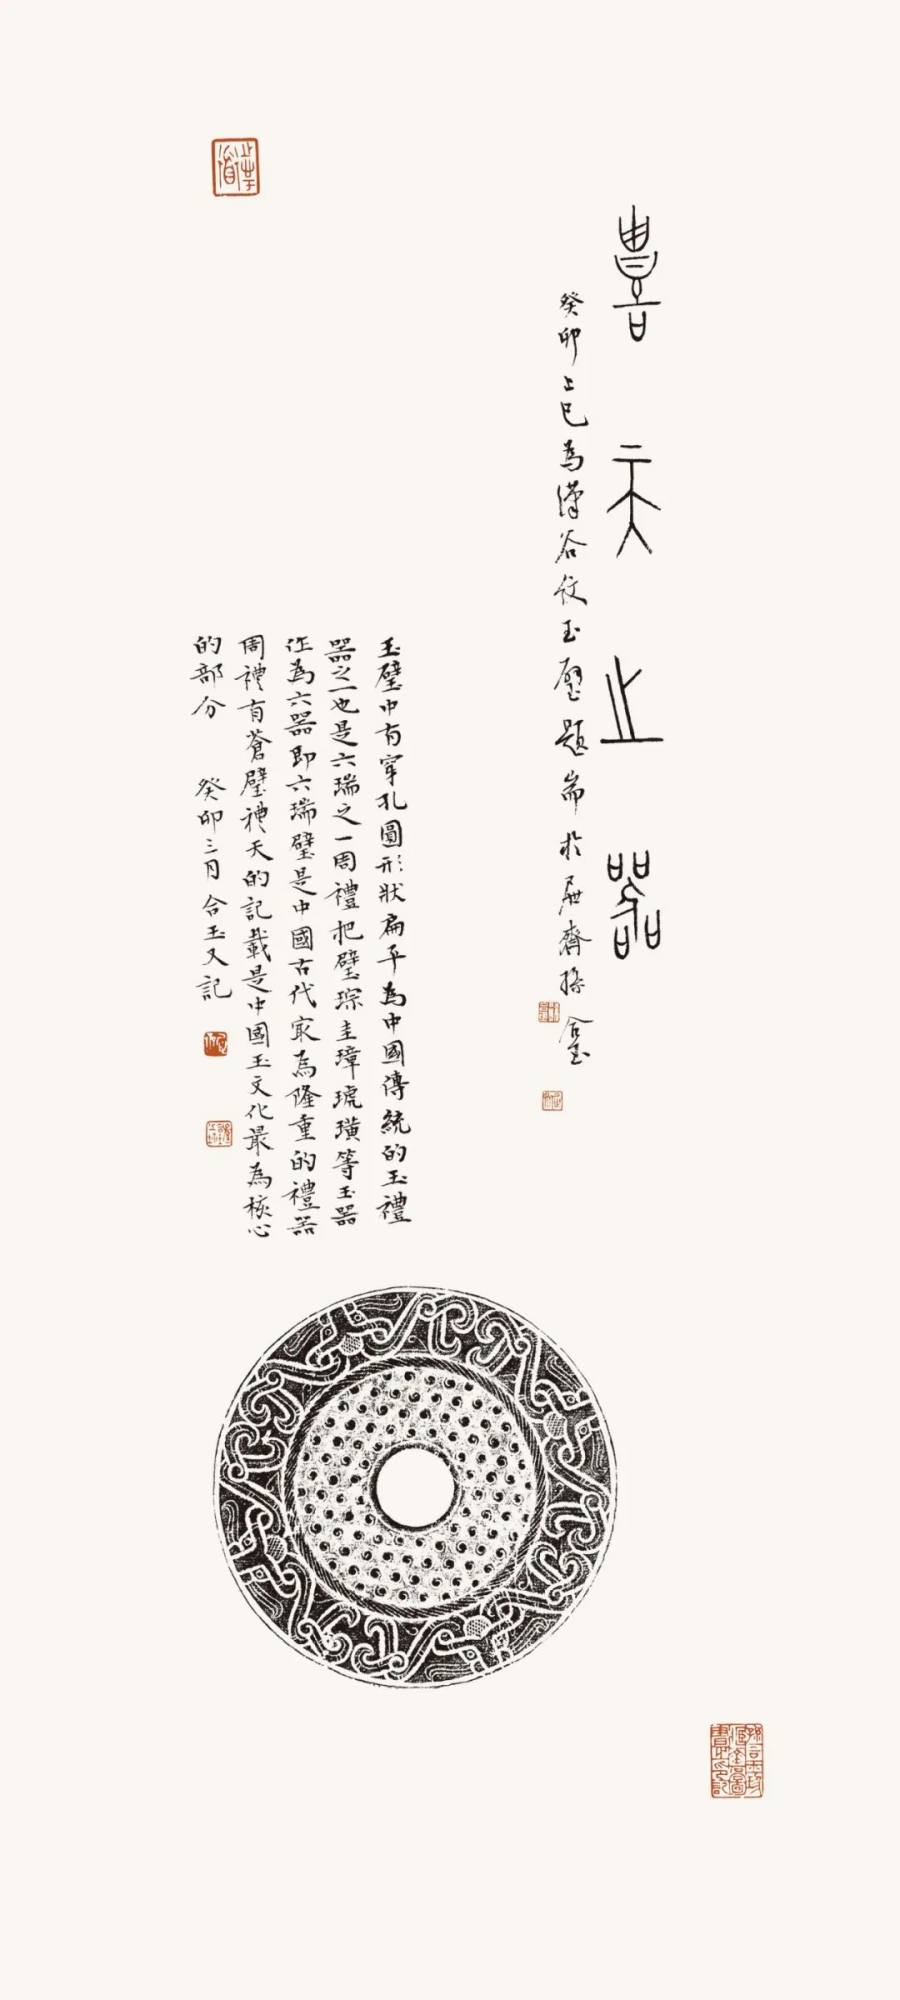 豊天之器
癸卯上巳為漢谷紋玉璧題耑於居齋孫合玉
玉璧中有穿孔圓形狀扁平為中國傳統的玉禮
器之一也是六瑞之一周禮把璧琮圭璋琥璜等玉器
作為六器即六瑞璧是中國古代最為隆重的禮器
周禮有蒼璧禮天的記載是中國玉文化最為核心
的部分 癸卯三月合玉又記